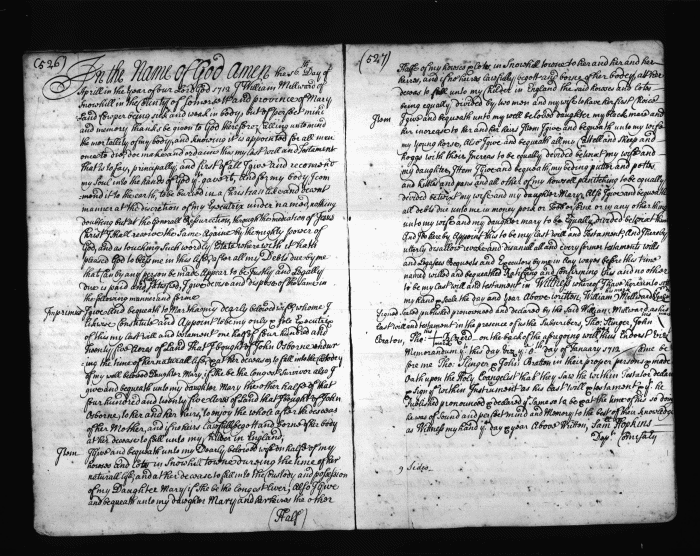 (526)
In the Name of God Amen the 16th Day of
Aprill in the year of our Lord God 1712 I William Millward of
Snowhill in the County of Somerset and province of Mary
Land cooper being sick and weak in body but of perfect mind
and memory thanks be given to God therefore, calling unto mind
the mortallity of my body, and knowing it is appointed for all men
once to dye, doe make and ordaine this my last will and Testament
that is to say, principally, and first of all I give and recommend
my Soul into the hands of God that gave it, and for my body I com
mend it to the earth to be buried in a Christian like and decent
manner at the discretion of my Executrix under named, nothing
doubting but at the Generall Resurrection, through the mediation of Jesus
Christ I shall receive the Same Againe by the mighty power of
God, and as touching such wordly Estate wherewith it hath
pleased God to bless me in this Life, after all my Debts due by me
that can by any person be made Appear to be Justly and Legally
due is paid and satisfied, I give devise and dispose of the Same in
the following manner and forme
Imprimis I give and bequeath to Martha my dearly beloved wife whome I
likewise Constitute and Appoint to be my only & sole Executrix
of this my last will and testament one halfe of four hundred and
twenty five Acres of Land that I bought of John Osborne and dur
ing the time of her naturall life, & at her decease to fall into the Custody
of my well beloved Daughter Mary, if she be the Longest Survivor also I
give and bequeath unto my daughter Mary the other halfe of that
four hundred and twenty five Acres of Land that I bought of John
Osborne, to her and her heirs, to enjoy the whole after the decease
of her Mother, and if no heirs Carefully begott and borne of her body
at her decease to fall unto my Kilder in England,
Item I give and bequeath unto my Dearly beloved wife on half of my
houses and Lotts in Snowhill towne during the time of her
naturall life, and at her decease to fall into the Custody and possession
of my Daughter Mary if she be the Longest Liver; Also I give
and bequeath unto my daughter Mary and her heires the other
(Half)
(527)
Halfe of my houses & Lotts in Snowhill towne to her and her and her
heires, and if no heires Carefully begott and borne of her bodey, at her
decease to fall unto my Kilder in England the said houses and Lotts
being equally divided by two men and my wife to have her first Choice
Item I give and bequeath unto my well beloved daughter my black maid and
her increase to her and her heirs Item I give and bequeath unto my wife
my young horse, Also I give and bequeath all my Cattell and Sheep and
hoggs with there Increas to be equally divided betwixt my wife and
my daughter, Item I give and bequeath, my beding puter and potts
and kittles and pans and all other of my household plenishing to be equally
divided betwixt my wife and my daughter Mary. Also I give and bequeath
all debts due unto me in money pork or Tobb or Rine or any other thing
unto my wife and my daughter Mary to be equally divided betwixt them
And I do hereby Appoint this to be my last will and testament And thereby
utterly disallow revoke and disanull all and every former testaments wills
and Legases Bequests and Executors by me in Any wayes before this time
named willed and bequeathed Ratifying and Confirming this and no other
to be my last will and testament in Witness whereof I have hereunto set
my hand & seale the day and year Above written, William Millward
Signed Sealed published pronounced and declared by the said William Millward as his
last will and testament in the presence of us the Subscribers, Tho: Slinger John
Eraton, Tho: on the back of the afore going will this Endorst
Memorandum; this day of January 1712 Came be
fore me Tho: Slinger & John Eraton in their proper persons & made
Oath upon the Holy Evangelist that they Saw the within Testator declare
& Sign the within Instrument as his Last Will & testament & yt he
Published pronounced & declared ye same so to be & at the time of his so doing
he was of Sound and perfect mind and Memory to the best of their knowledge
as Witness my hand ye day & year Above Written, Sam Hopkins
Depty Comissaly
9 Sides